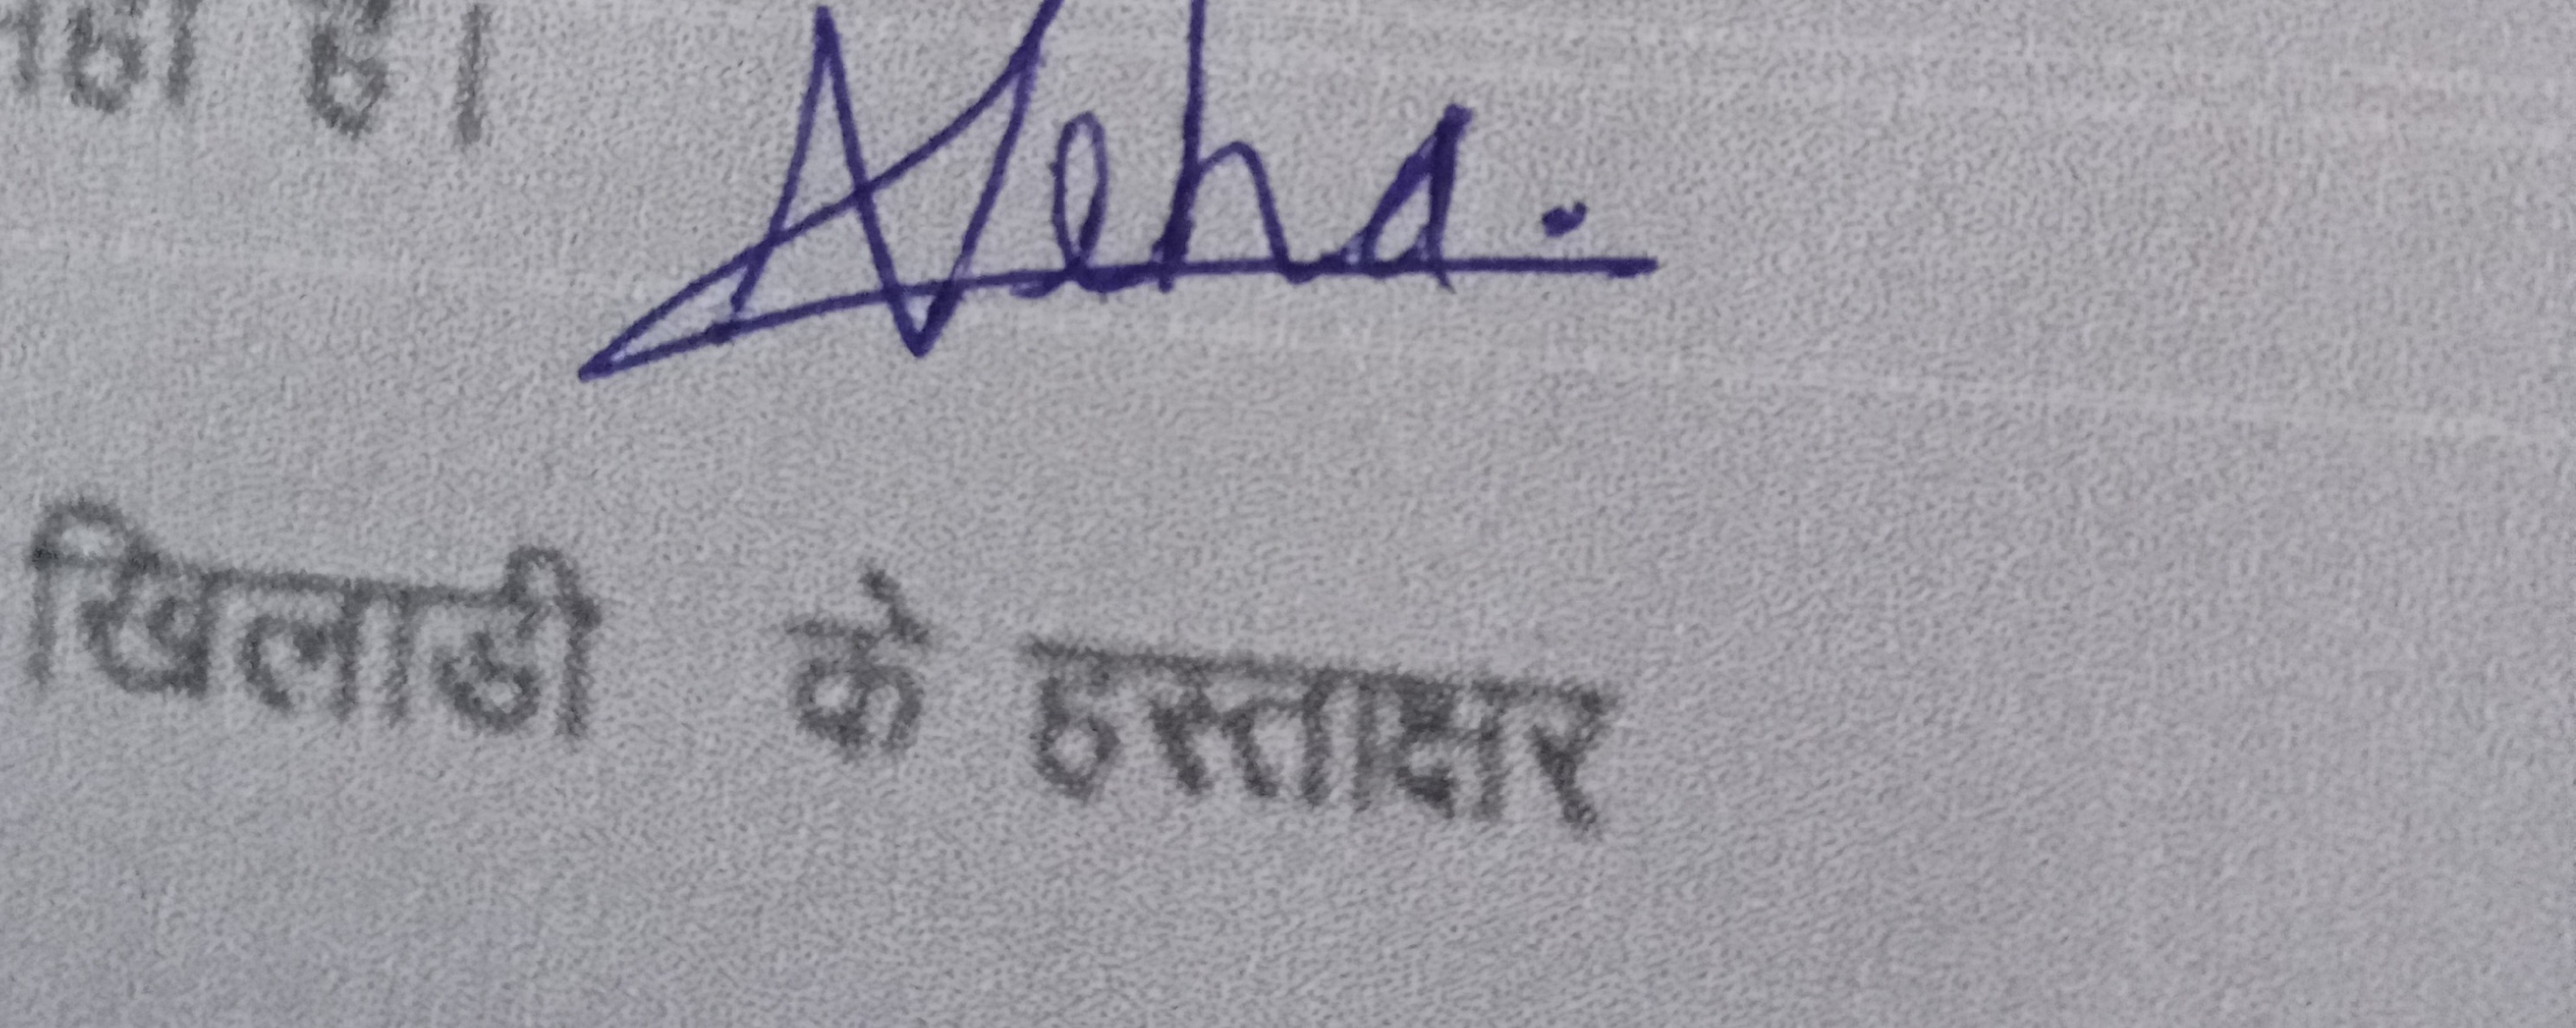 है।
Neha.
खिलाडी के हस्ताक्षर